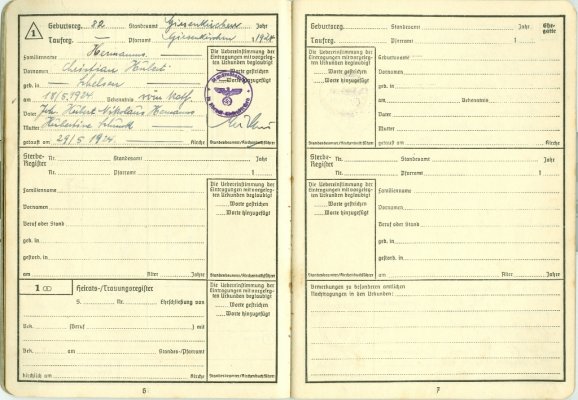 1
Geburtsreg. 82. Standesamt Giesenkirchen Jahr
Taufreg. — Pfarramt Giesenkirchen 1924
Familienname Hermanns
Vornamen Christian Hubert
geb. in Schelsen
am 18/5.1924 Bekenntnis röm. kath.
Vater Joh. Hubert Nikolaus Hermanns
Mutter Hubertine
getauft am 29/5 1924 Kirche
Die Uebereinstimmung der
Eintragungen mit vorgeleg-
ten Urkunden beglaubigt
Worte gestrichen
Worte hinzugefügt
Standesbeamter/Kirchenbuchführer
Sterbe-
Register
Nr. Standesamt Jahr
Nr. Pfarramt 1
Familienname
Vornamen
Beruf oder Stand
geb. in
gestorb. in
am Alter Jahre
Die Uebereinstimmung der
Eintragungen mit vorgeleg-
ten Urkunden beglaubigt
......Worte gestrichen
......Worte hinzugefügt
Standesbeamter/Kirchenbuchführer
1 Heirats-/Trauungsregister
S. Nr. Eheschließung von
Bek. (Beruf ) mit
Bek. am Standes-/Pfarramt
kirchlich am Kirche
Die Uebereinstimmung der
Eintragungen mit vorgeleg-
ten Urkunden beglaubigt
......Worte gestrichen
......Worte hinzugefügt
Standesbeamter/Kirchenbuchführer
6
Geburtsreg. Standesamt Jahr
Taufreg. Pfarramt 1
Ehe-
gatte
Familienname
Vornamen
geb. in
am Bekenntnis
Vater
Mutter
getauft am Kirche
Die Uebereinstimmung der
Eintragungen mit vorgeleg-
ten Urkunden beglaubigt
......Worte gestrichen
Worte hinzugefügt
Standesbeamter/Kirchenbuchführer
Sterbe-
Register
Nr. Standesamt Jahr
Nr. Pfarramt 1
Familienname
Vornamen
Beruf oder Stand
geb. in
gestorb. in
am Alter Jahre
Die Uebereinstimmung der
Eintragungen mit vorgeleg-
ten Urkunden beglaubigt
......Worte gestrichen
......Worte hinzugefügt
Standesbeamter/Kirchenbuchführer
Bemerkungen zu besonderen amtlichen
Nachtragungen in den Urkunden:
7